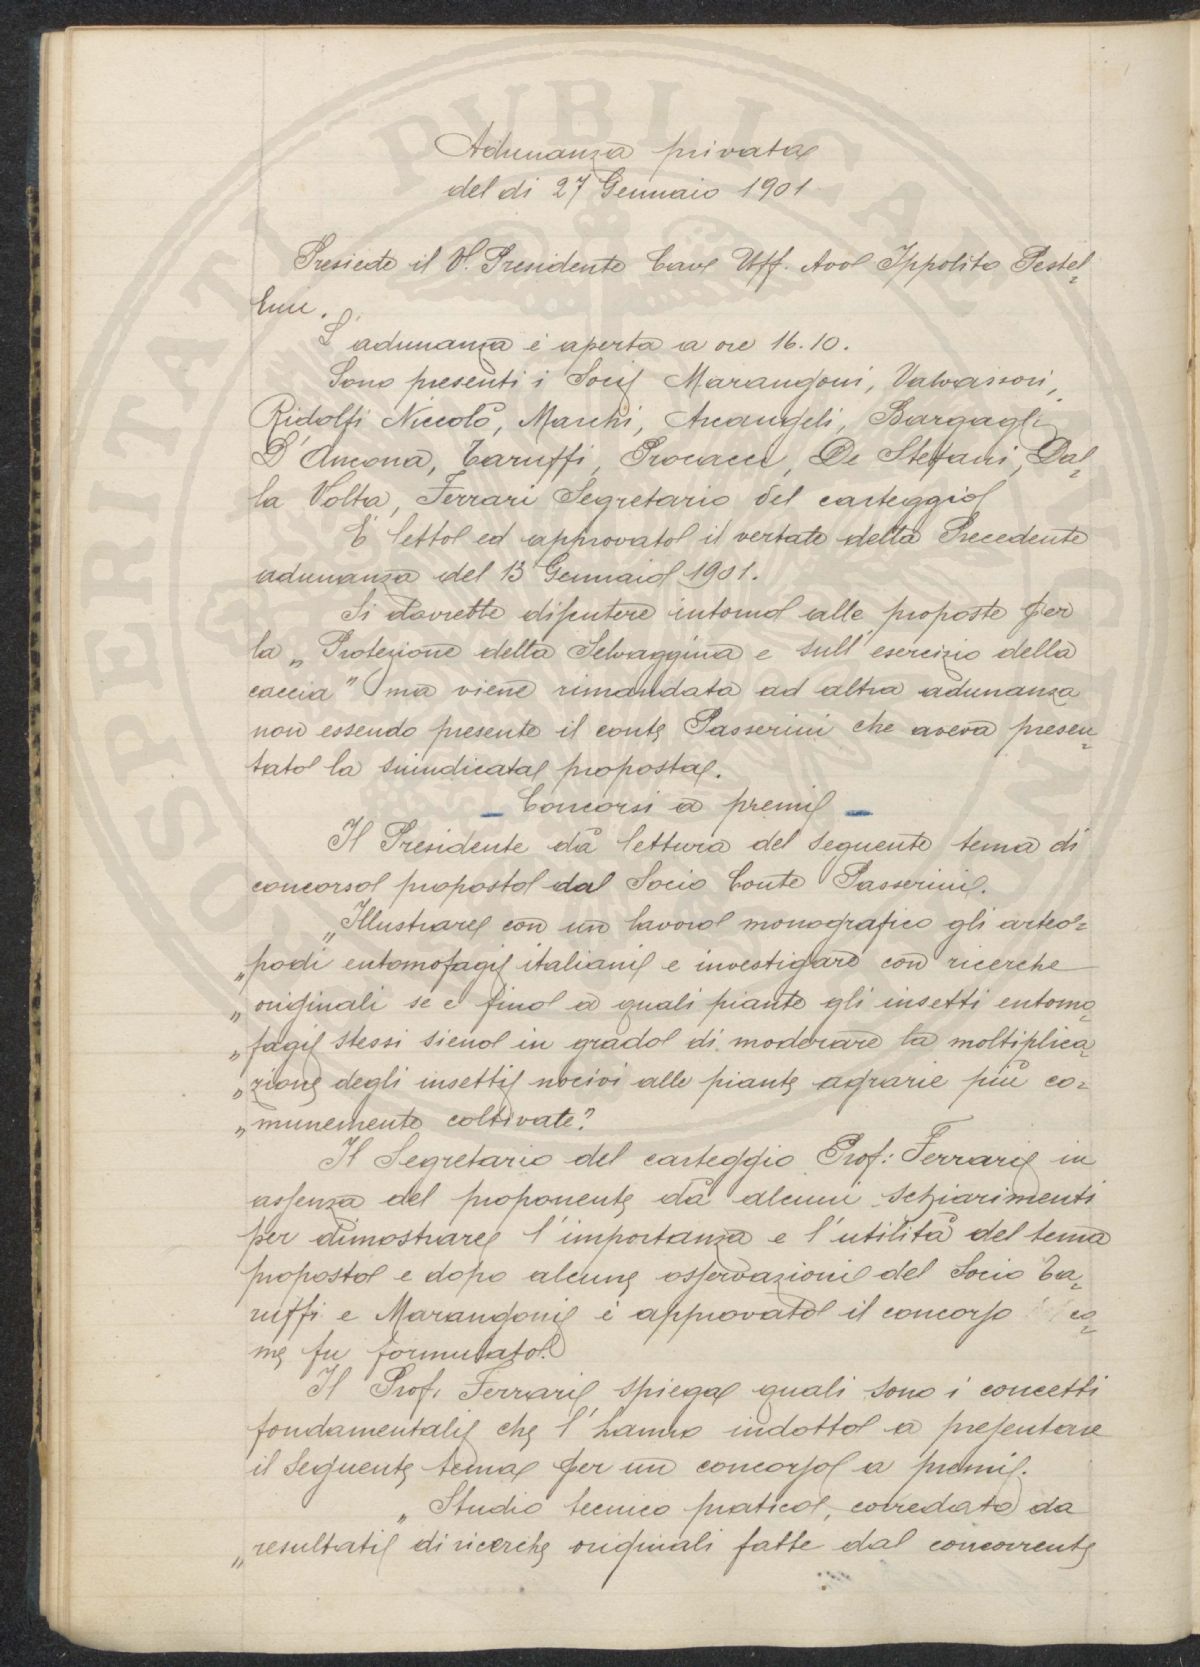 Adunanza privata
del dì 27 Gennaio 1901
Presiede il V. Presidente Cav. Uff. Avv. Ippolito Pestel=
lini.
L'adunanza è aperta a ore 16.10.
Sono presenti i Soci Marangoni, Valvassori,
Ridolfi Niccolò, Marchi, Arcangeli, Bargagli
D'Ancona, Caruffi, Procacci, De Stefani, Dal=
la Volta, Ferrari Segretario del carteggio
È letto ed approvato il verbale della Precedente
adunanza del 13 Gennaio 1901.
Si dovrebbe discutere intorno alle proposte per
la „Protezione della Selvaggina e sull'esercizio della
caccia" ma viene rimandata ad altra adunanza
non essendo presente il conte Passerini che aveva presen=
tato la suindicata proposta.
— Concorsi a premi —
Il Presidente dà lettura del seguente tema di
concorso proposto dal Socio Conte Passerini.
„Illustrare con un lavoro monografico gli arteo=
„podi entomofagi italiani e investigare con ricerche
„originali se e fino a quali piante gli insetti entomo=
„fagi stessi sieno in grado di moderare la moltiplica=
„zione degli insetti nocivi alle piante agrarie più co=
„munemente coltivate?
Il Segretario del carteggio Prof: Ferrari in
assenza del proponente dà alcuni schiarimenti
per dimostrare l'importanza e l'utilità del tema
proposto e dopo alcune osservazioni del Socio Ca=
ruffi e Marangoni è approvato il concorso co=
me fu formulato.
Il Prof. Ferrari spiega quali sono i concetti
fondamentali che l'hanno indotto a presentare
il seguente tema per un concorso a premi.
„Studio tecnico pratico, corredato da
„resultati di ricerche originali fatte dal concorrente
SPERITATI PUBLICAE